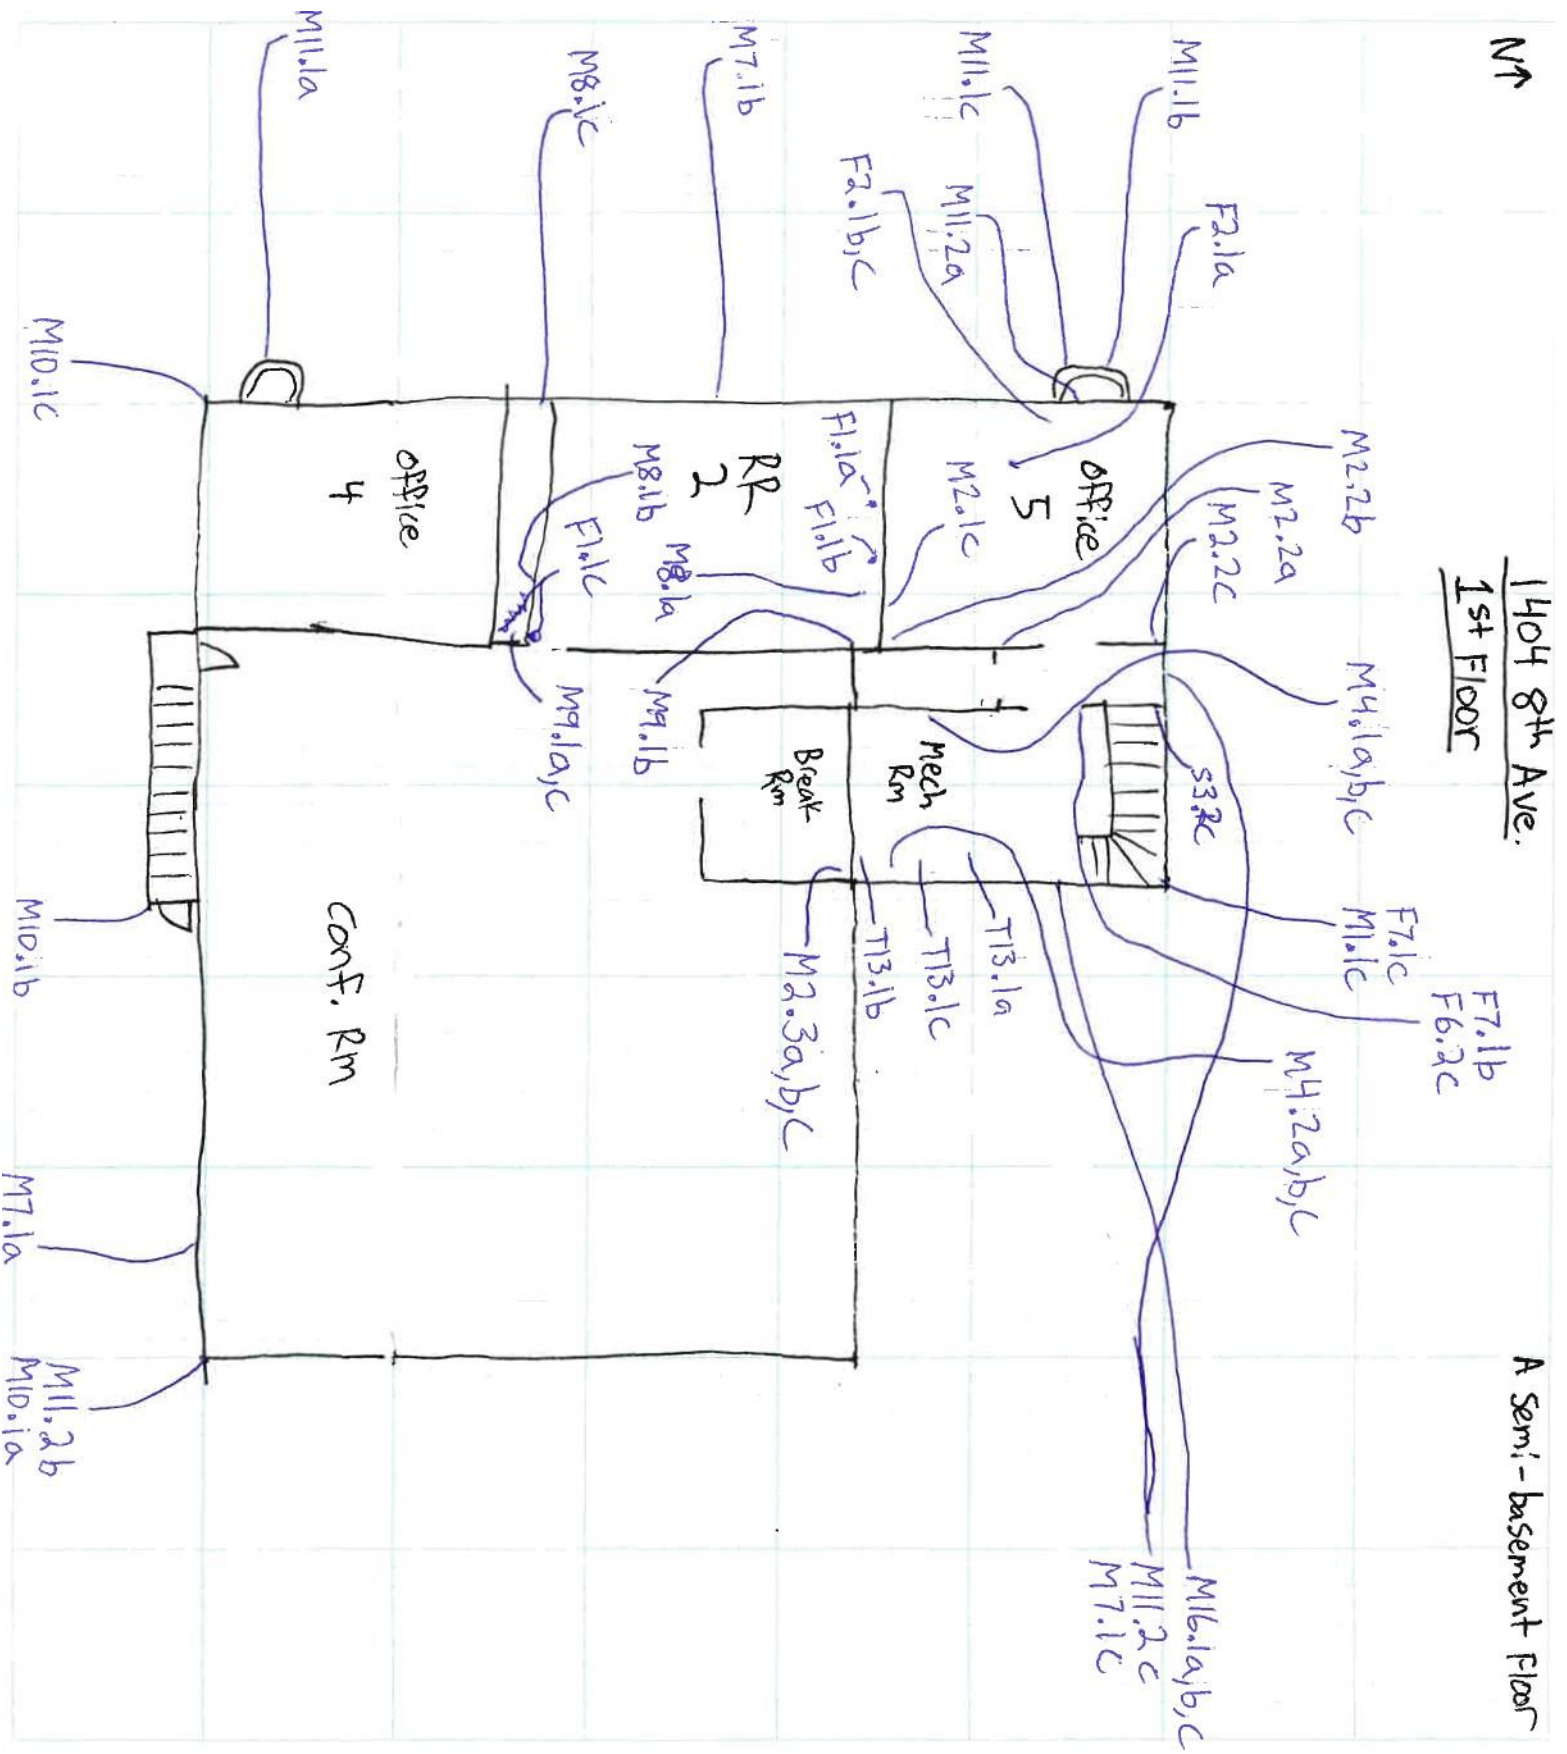 N↑
1404 8th Ave.
1st Floor
A semi-basement Floor
M11.1b
M11.1c
F2.1a
M11.2a
F2.1b,c
M7.1b
M8.1c
M11.1a
M10.1c
M2.2b
M2.2a
M2.2c
M4.1a,b,c
S3.2c
F7.1c
M1.1c
F7.1b
F6.2c
M4.2a,b,c
M16.1a,b,c
M11.2c
M7.1c
office
5
M2.1c
F1.1a
F1.1b
RR
2
M8.1a
M8.1b
F1.1c
office
4
M9.1b
M9.1a,c
Mech
Rm
Break
Rm
T13.1a
T13.1c
T13.1b
M2.3a,b,c
Conf. Rm
M10.1b
M7.1a
M11.2b
M10.1a